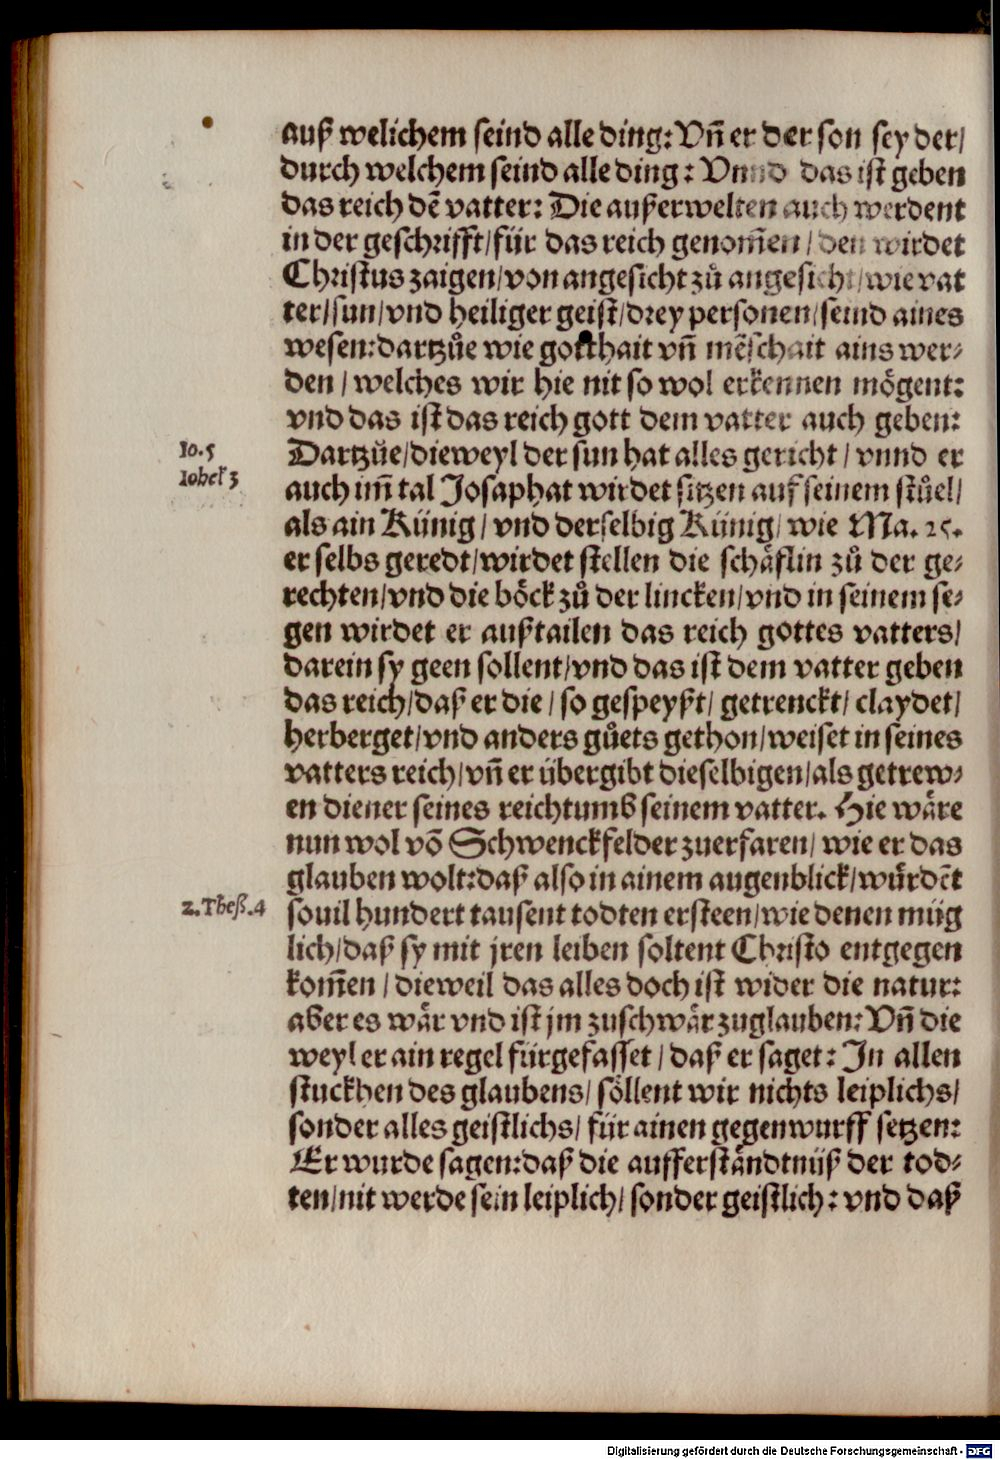 auß welichem seind alle ding: Vñ er der son sey der/
durch welchem seind alle ding: Vnnd das ist geben
das reich dẽ vatter: Die außerwelten auch werdent
in der geschrifft/ für das reich genom̃en/ den wirdet
Christus zaigen/ von angesicht zů angesicht/ wie vat
ter/ sun/ vnd heiliger geist/ drey personen/ seind aines
wesen: dartzůe wie gotthait vñ mẽschait ains wer-
den/ welches wir hie nit so wol erkennen mögent:
vnd das ist das reich gott dem vatter auch geben:
Io. 5
Dartzůe/ dieweyl der sun hat alles gericht/ vnnd er
Iohel 3
auch im̃ tal Josaphat wirdet sitzen auf seinem stůel/
als ain Künig/ vnd derselbig Künig/ wie Ma. 25.
er selbs geredt/ wirdet stellen die schäflin zů der ge-
rechten/ vnd die böck zů der lincken/ vnd in seinem se-
gen wirdet er außtailen das reich gottes vatters/
darein sy geen sollent/ vnd das ist dem vatter geben
das reich/ daß er die/ so gespeyßt/ getrenckt/ claydet/
herberget/ vnd anders gůets gethon/ weiset in seines
vatters reich/ vñ er übergibt dieselbigen/ als getrew-
en diener seines reichtumb seinem vatter. Hie wäre
nun wol võ Schwenckfelder zuerfaren/ wie er das
glauben wolt: daß also in ainem augenblick/ würdẽt
2. Theß. 4
souil hundert tausent todten ersteen/ wie denen müg
lich/ daß sy mit jren leiben soltent Christo entgegen
kom̃en/ dieweil das alles doch ist wider die natur:
aber es wär vnd ist jm zuschwär zuglauben: Vñ die
weyl er ain regel fürgefasset/ daß er saget: In allen
stuckhen des glaubens/ söllent wir nichts leiplichs/
sonder alles geistlichs/ für ainen gegenwurff setzen:
Er wurde sagen: daß die aufferständtnüß der tod-
ten/ nit werde sein leiplich/ sonder geistlich: vnd daß
Digitalisierung gefördert durch die Deutsche Forschungsgemeinschaft - DFG